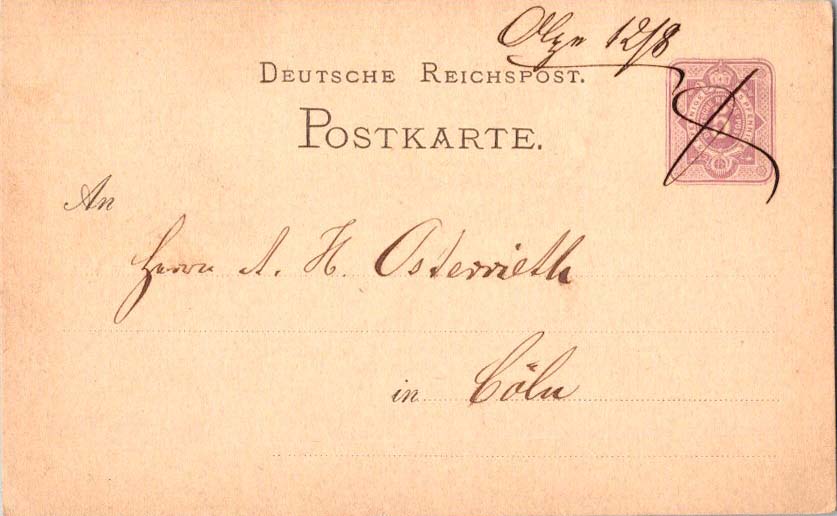 Olpe 12/8
DEUTSCHE REICHSPOST.
POSTKARTE.
An
Herrn A. H. Osterrieth
in Cöln